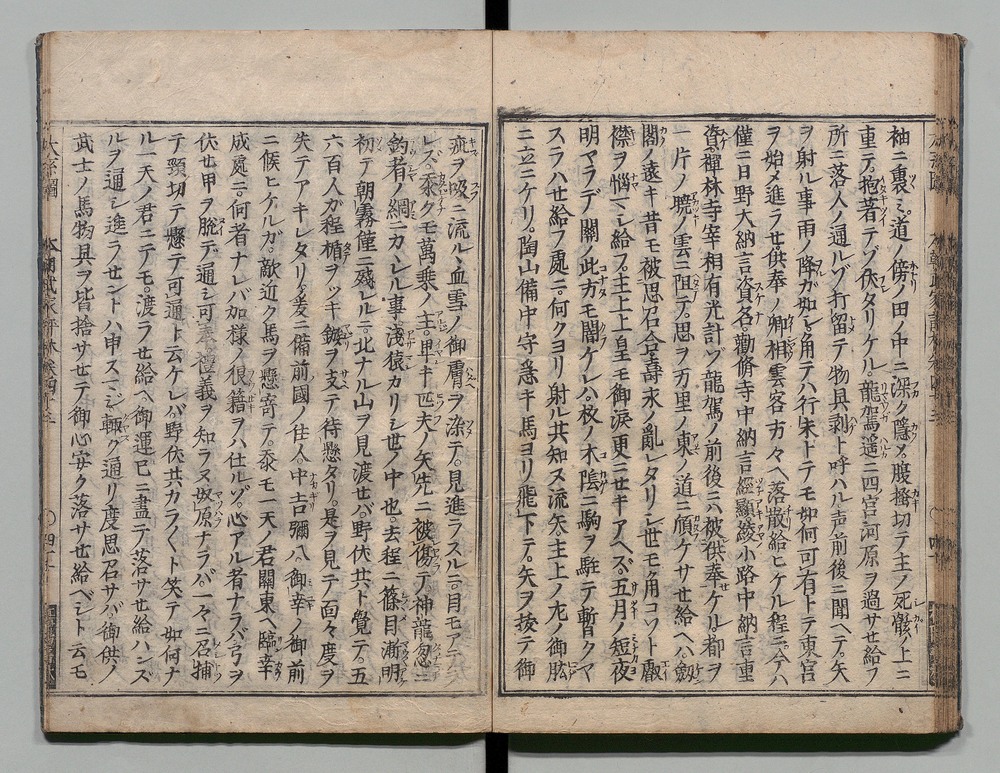 袖ニ裹ミ道ノ傍ノ田ノ中ニ深ク隱メ腹搔切テ主ノ死骸ノ上ニ
重テ抱著テゾ伏タリケル龍駕遙ニ四宮河原ヲ過サセ給フ
所ニ落人ノ通ルゾ打留テ物具剥ト呼ハル声前後ニ聞ヘテ矢
ヲ射ル事雨ノ降ガ如シ角テハ行末トテモ如何可有トテ東宮
ヲ始メ進ラセ供奉ノ卿相雲客方々ヘ落散給ヒケル程ニ今ハ
僅ニ日野大納言資名勸修寺中納言經顯綾小路中納言重
資禪林寺宰相有光計ゾ龍駕ノ前後ニハ被供奉ケル都ヲ
一片ノ曉ノ雲ニ阻テ思ヲ万里ノ東ノ道ニ傾ケサセ給ヘハ劔
閣ノ遠キ昔モ被思召合壽永ノ亂レタリシ世モ角コソト叡
襟ヲ惱マシ給フ主上上皇モ御淚更ニセキアヘズ五月ノ短夜
明マラデ關ノ此方モ闇ケレハ杉ノ木陰ニ駒ヲ駐テ暫クヤ
スラハせ給フ處ニ何クヨリ射ル共知ヌ流矢主上ノ左ノ御肱
ニ立ニケリ陶山備中守急キ馬ヨリ飛下テ矢ヲ抜テ御
疵ヲ吸ニ流ルヽ血雪ノ御膚ヲ染テ見進ラスルニ目モアテラ
レズ忝クモ萬乘ノ主卑キ匹夫ノ矢先ニ被傷テ神龍忽ニ
釣者ノ網ニカヽレル事淺猿カリシ世ノ中也去程ニ篠目漸明
初テ朝霧僅ニ殘レルニ北ナル山ヲ見渡セバ野伏共ト覺テ五
六百人ガ程楯ヲツキ鏃ヲ支テ待懸タリ是ヲ見テ面々度ヲ
失テアキレタリ爰ニ備前國ノ住人中吉彌八御幸ノ御前
ニ候ヒケルガ敵近ク馬ヲ懸寄テ忝モ一天ノ君關東ヘ臨幸
成處ニ何者ナレバ加様ノ狼籍ヲハ仕ルゾ心アル者ナラバ弓ヲ
伏せ甲ヲ脱デ通シ可奉禮義ヲ知ラヌ奴原ナラバ一々ニ召捕
テ頸切テ懸テ可通ト云ケレバ野伏共カラ〱ト笑テ如何ナ
ル一天ノ君ニテモ渡ラせ給ヘ御運已ニ盡テ落サせ給ハンズ
ルヲ通シ進ラせント申スマジ輙ク通リ度思召サバ御供ノ
武士ノ馬物具ヲ皆捨サせテ御心安ク落サせ給ベシト云モ